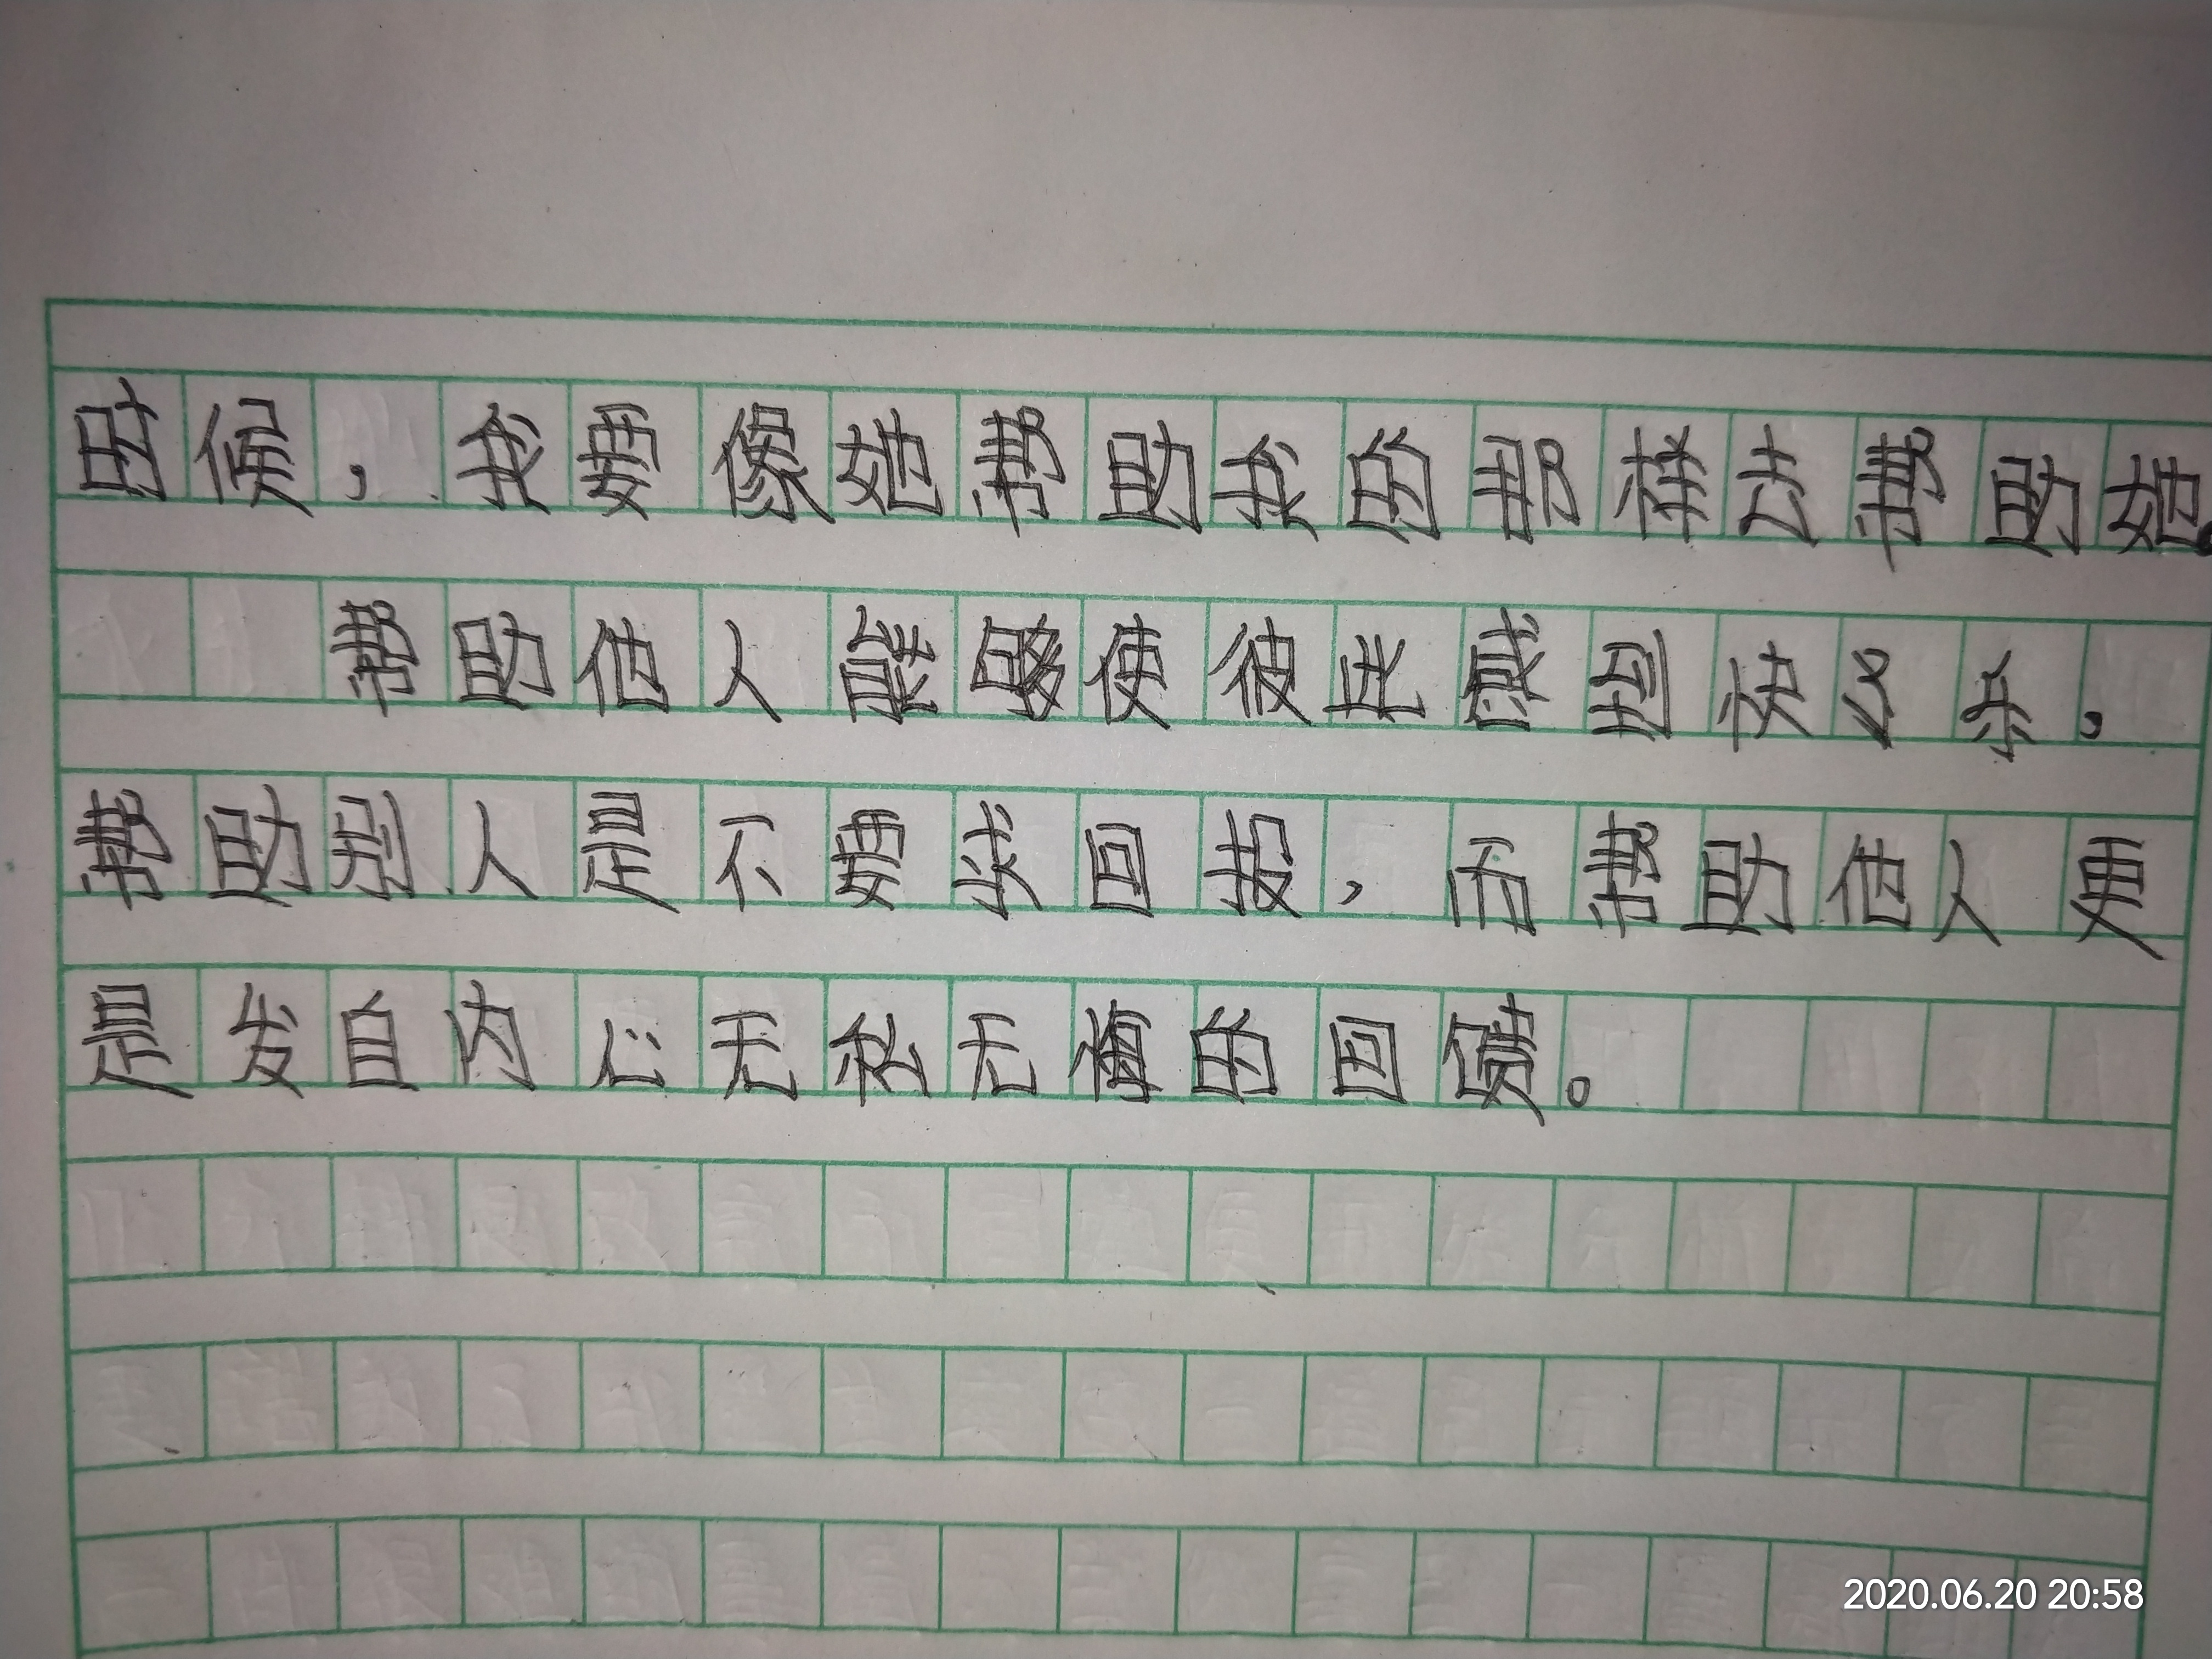 时候，我要像她帮助我的那样去帮助她。
帮助他人能够使彼此感到快乐，
帮助别人是不要求回报，而帮助他人更
是发自内心无私无悔的回馈。
2020.06.20 20:58